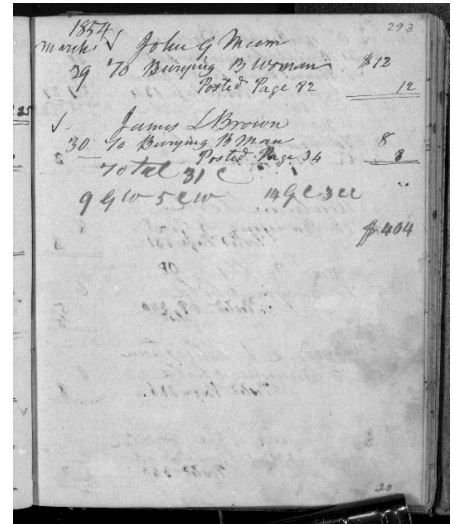 293
1854
March √ John G Moem
29 To Burying B Woman $12
Posted Page 82 12
√ James L Brown
30 To Burying B Man 8
Posted Page 34 8
Total 31 C
9 G W 5 C W 14 G C 3 CC
$404
20